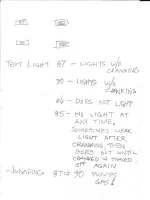 TEST LIGHT 87 - LIGHTS W/O
CRANKING
30 - LIGHTS W/O
CRANKING
86 - DOES NOT LIGHT
85 - NO LIGHT AT
ANY TIME.
SOMETIMES WEAK
LIGHT AFTER
CRANKING, THEN
GOES OUT UNTIL
CRANKED & TURNED
OFF AGAIN
- JUMPING 87 & 30 PUMPS
GAS!